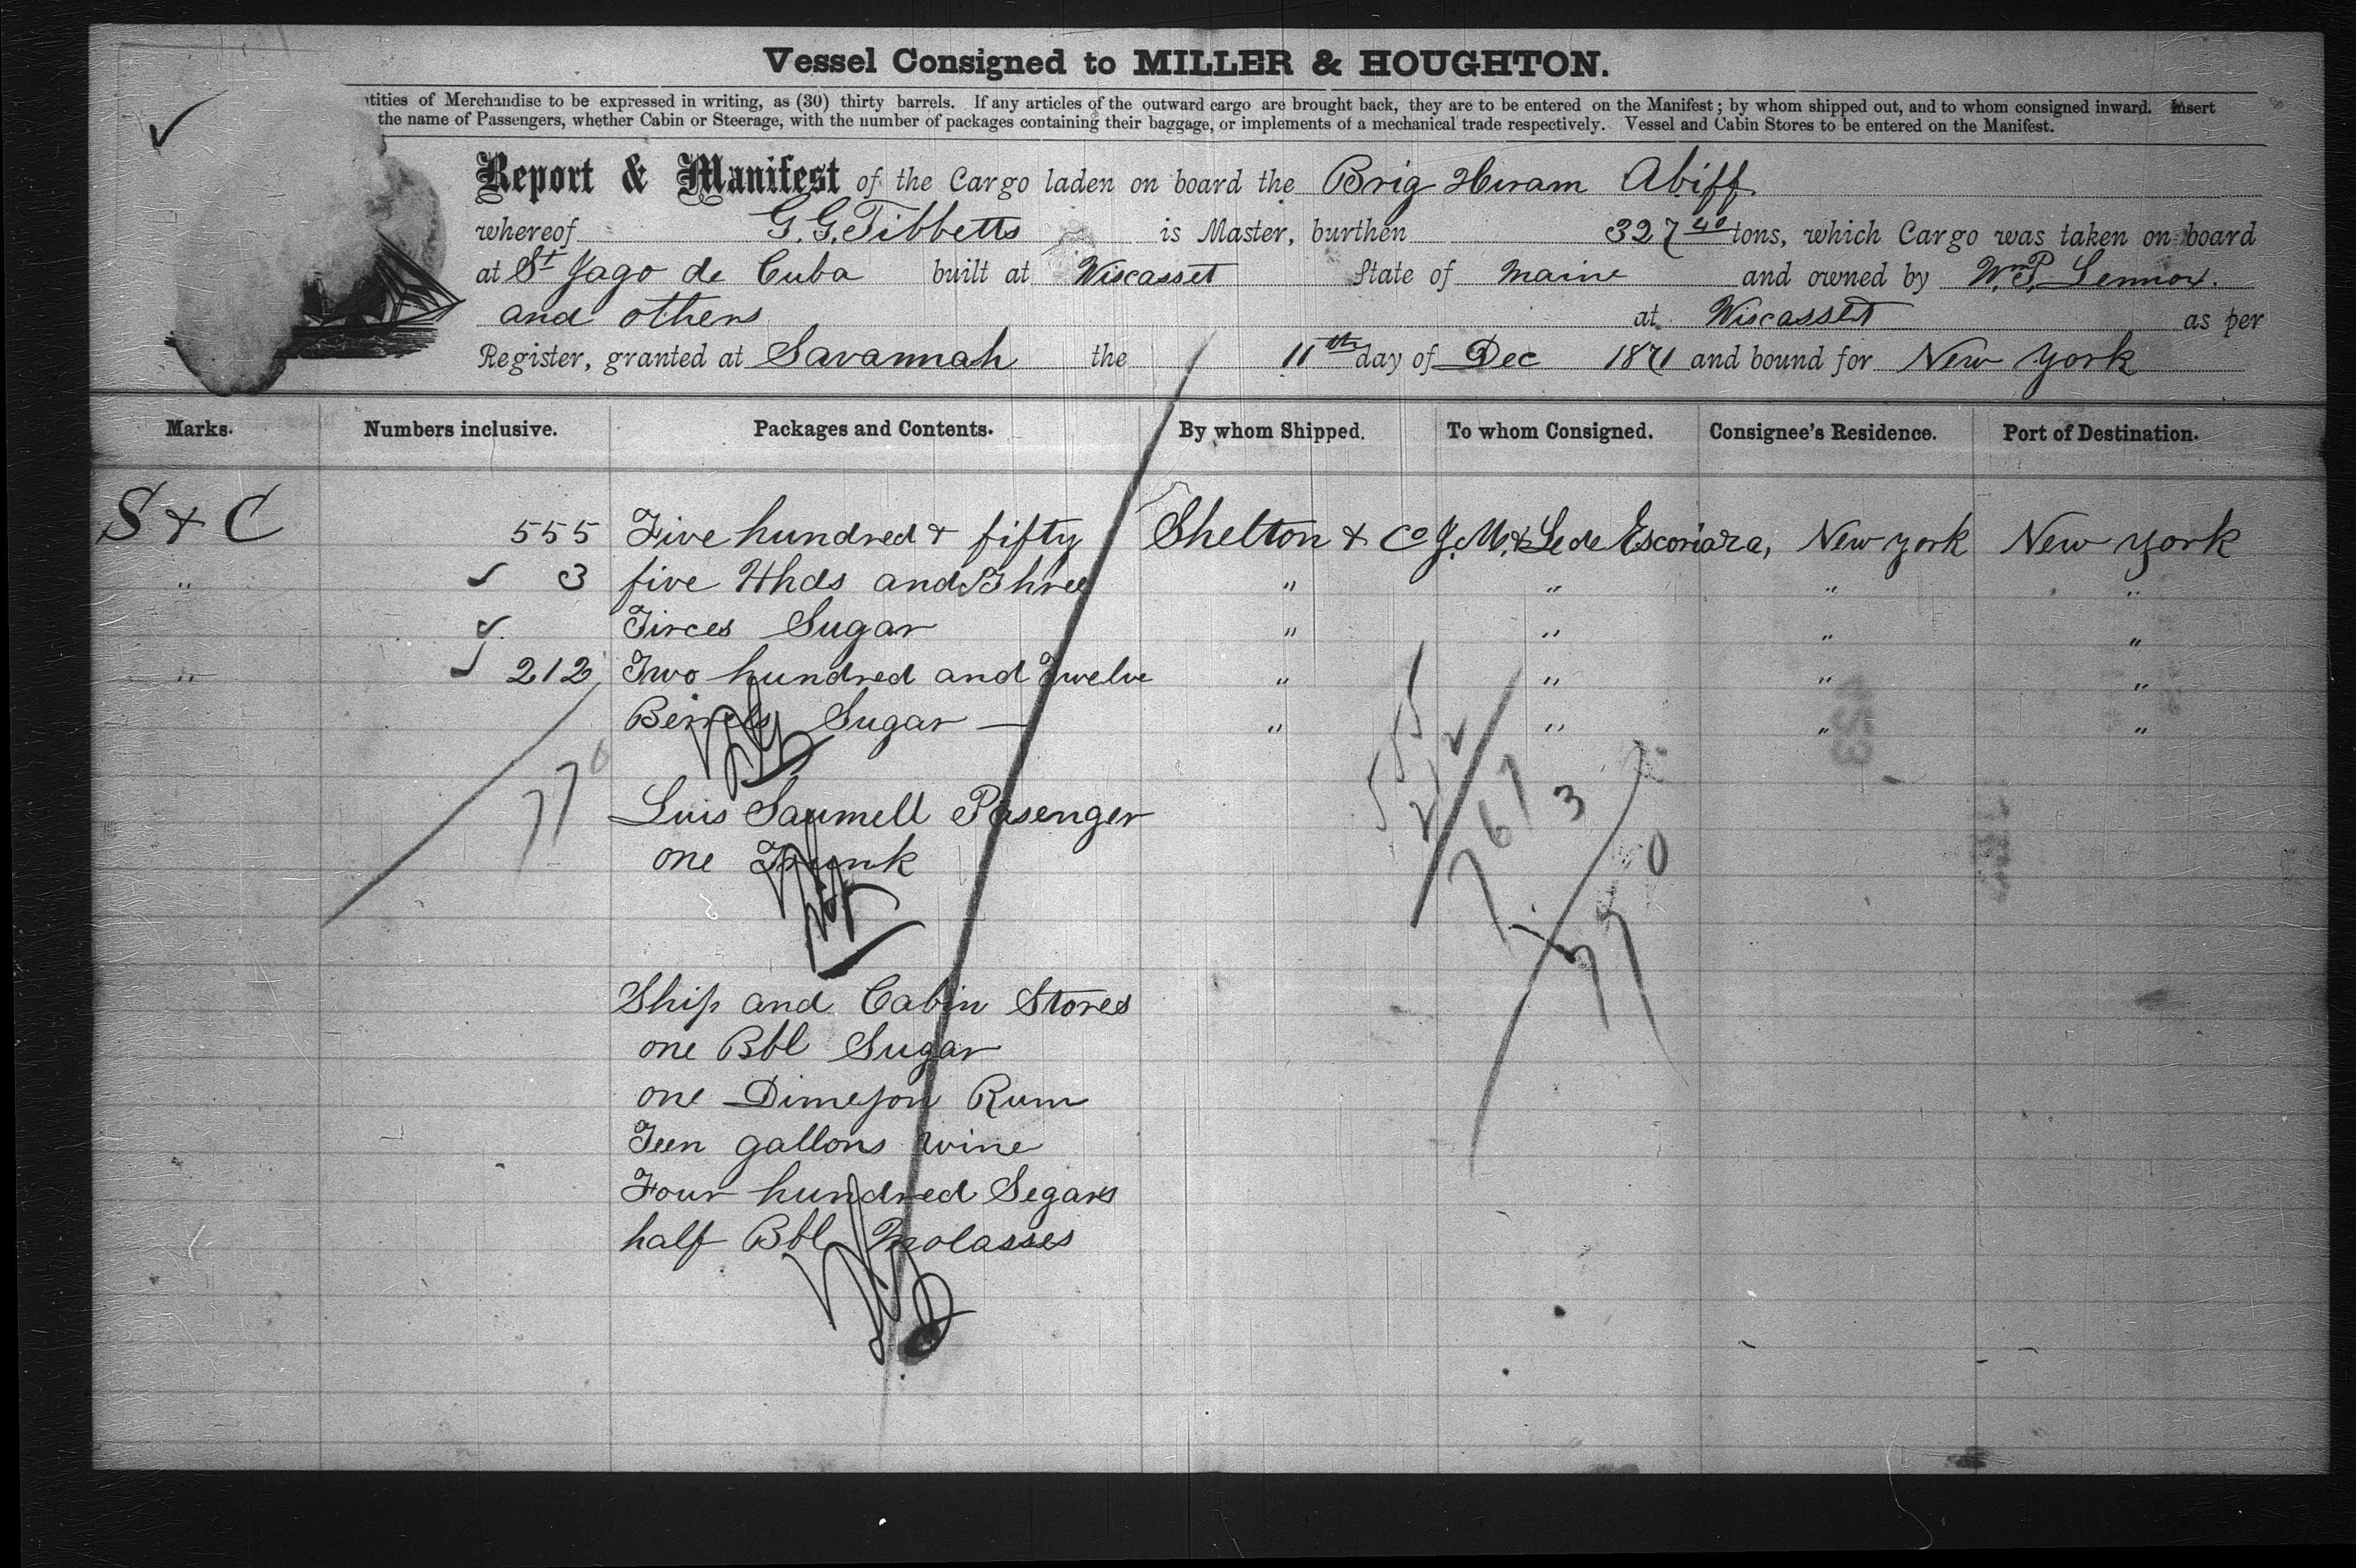 Vessel Consigned to MILLER & HOUGHTON.
ntities of Merchandise to be expressed in writing, as (30) thirty barrels. If any articles of the outward cargo are brought back, they are to be entered on the Manifest; by whom shipped out, and to whom consigned inward. Insert
the name of Passengers, whether Cabin or Steerage, with the number of packages containing their baggage, or implements of a mechanical trade respectively. Vessel and Cabin Stores to be entered on the Manifest.
Report & Manifest of the Cargo laden on board the Brig Hiram Abiff
whereof G. G. Tibbetts is Master, burthen 327 40 tons, which Cargo was taken on board
at St Jago de Cuba built at Wiscasset State of Maine and owned by Wm P. Lennox.
and others at Wiscasset as per
Register, granted at Savannah the 11th day of Dec 1871 and bound for New York
Marks. Numbers inclusive. Packages and Contents. By whom Shipped. To whom Consigned. Consignee's Residence. Port of Destination.
S & C 555 Five hundred & fifty Shelton & Co J. M. & L. de Escoriaza, New York New York
" 3 five Hhds and Three " " " "
Tirces Sugar " " " "
" 212 Two hundred and Twelve " " " "
Berrels Sugar — " " " "
770
555
212
767
3
770
Luis Saumell Pasenger
one Trunk
Ship and Cabin Stores
one Bbl Sugar
one Dimejon Rum
Teen gallons wine
Four hundred Segars
half Bbl Molasses